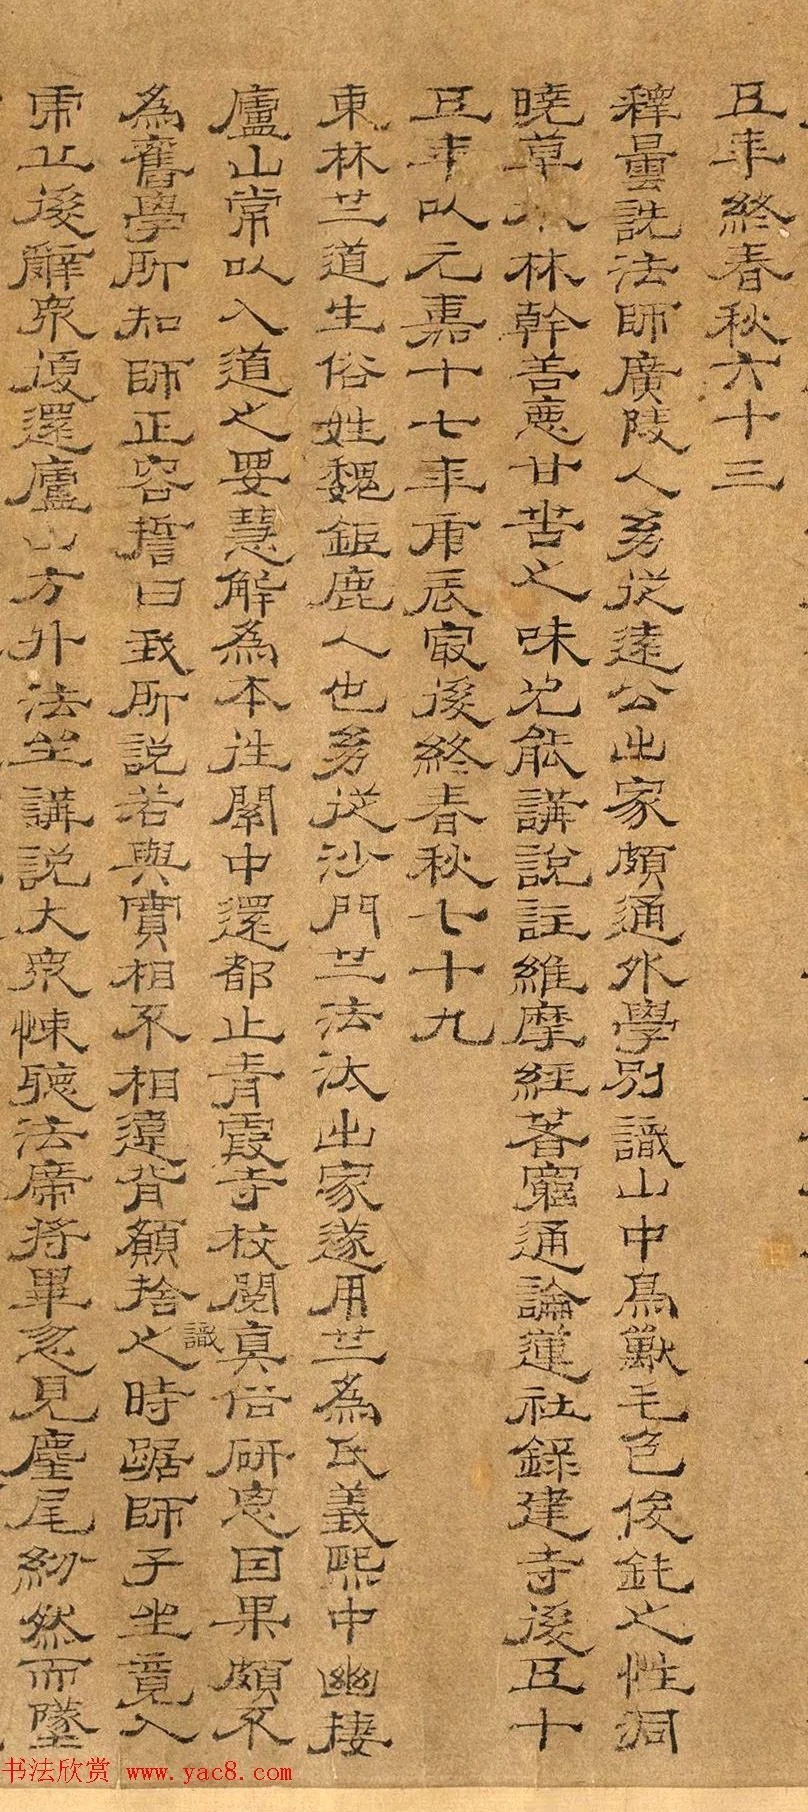 五年終春秋六十三
釋曇詵法師廣陵人㓜從遠公出家頗通外學別識山中鳥獸毛色俊鈍之性洞
曉草木林幹善惡甘苦之味尤能講說註維摩經著窮通論蓮社錄建寺後五十
五年以元嘉十七年庚辰冣後終春秋七十九
東林竺道生俗姓魏鉅鹿人也㓜從沙門竺法汰出家遂用竺為氏義熙中幽棲
廬山常以入道之要慧解為本往關中還都止青霞寺校閱真俗研思因果頗不
識
為舊學所知師正容誓曰我所說若與實相不相違背願捨之時踞師子坐竟入
虎丘後辭衆復還廬山方外法坐講說大衆悚聽法席將畢忽見麈尾紛然而墜
书法欣赏 www.yac8.com